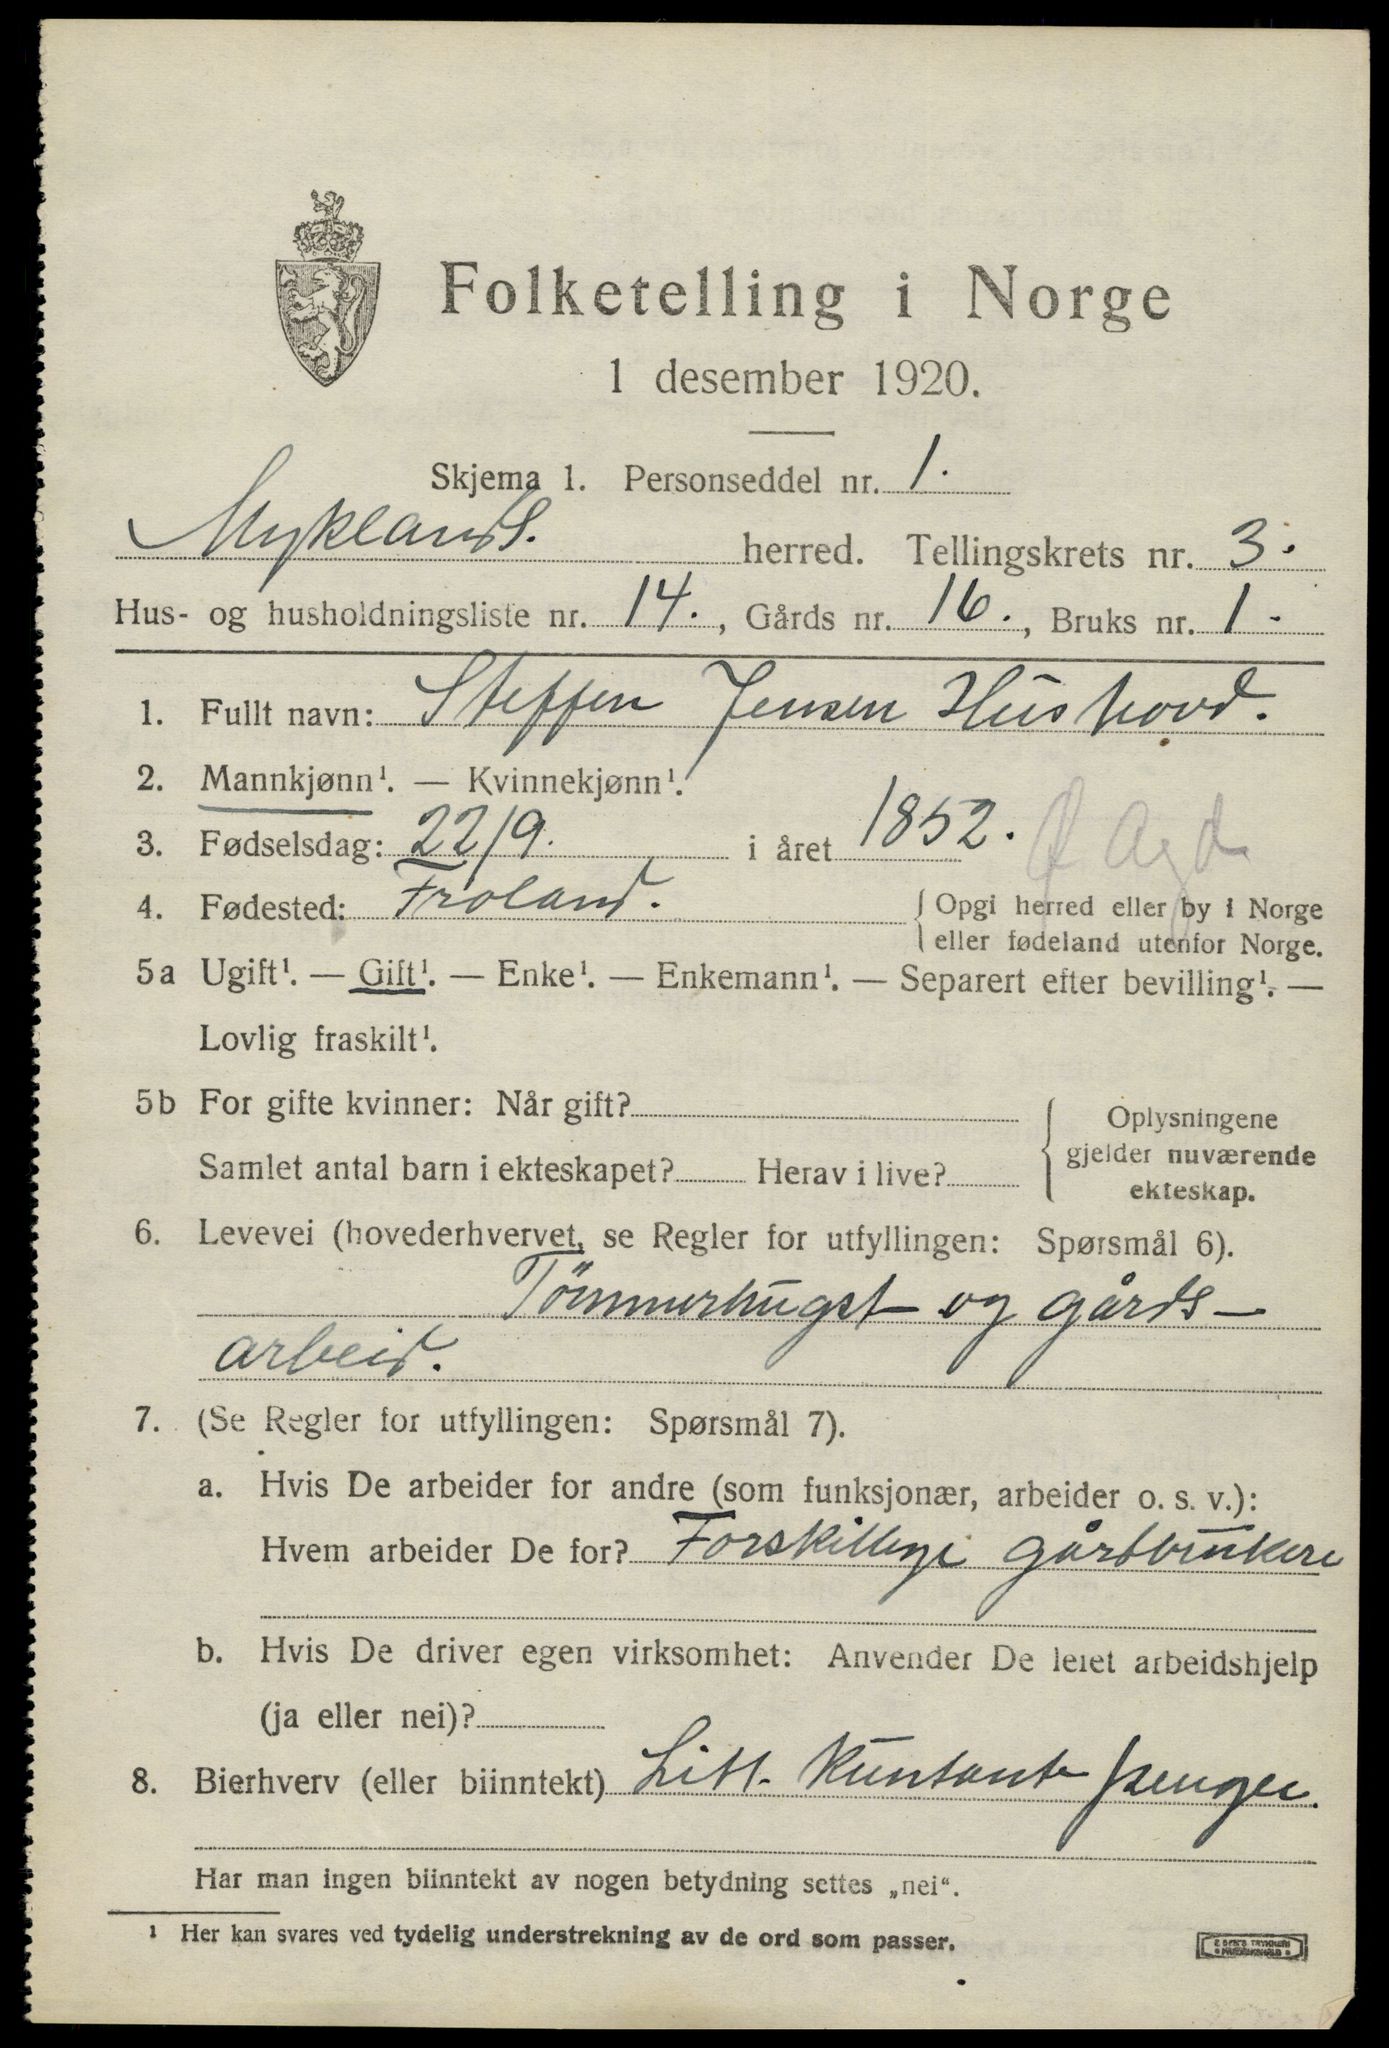 Folketelling i Norge
1 desember 1920.
Skjema 1. Personseddel nr. 1.
Myklands. herred. Tellingskrets nr. 3.
Hus- og husholdningsliste nr. 14., Gårds nr. 16., Bruks nr. 1.
1. Fullt navn: Steffen Jensen Hushovd.
2. Mannkjønn¹. — Kvinnekjønn¹.
3. Fødselsdag: 22/9. i året 1852. Ø Agd
4. Fødested: Froland. Opgi herred eller by i Norge
eller fødeland utenfor Norge.
5a Ugift¹. — Gift¹. — Enke¹. — Enkemann¹. — Separert efter bevilling¹. —
Lovlig fraskilt¹.
5b For gifte kvinner: Når gift?
Samlet antal barn i ekteskapet? Herav i live?
Oplysningene
gjelder nuværende
ekteskap.
6. Levevei (hovederhvervet, se Regler for utfyllingen: Spørsmål 6).
Tömmerhugst og gårds-
arbeid.
7. (Se Regler for utfyllingen: Spørsmål 7).
a. Hvis De arbeider for andre (som funksjonær, arbeider o. s. v.):
Hvem arbeider De for? Forskillige gårdbrukere
b. Hvis De driver egen virksomhet: Anvender De leiet arbeidshjelp
(ja eller nei)?
8. Bierhverv (eller biinntekt) Litt kuntant penger.
Har man ingen biinntekt av nogen betydning settes „nei“.
¹ Her kan svares ved tydelig understrekning av de ord som passer.